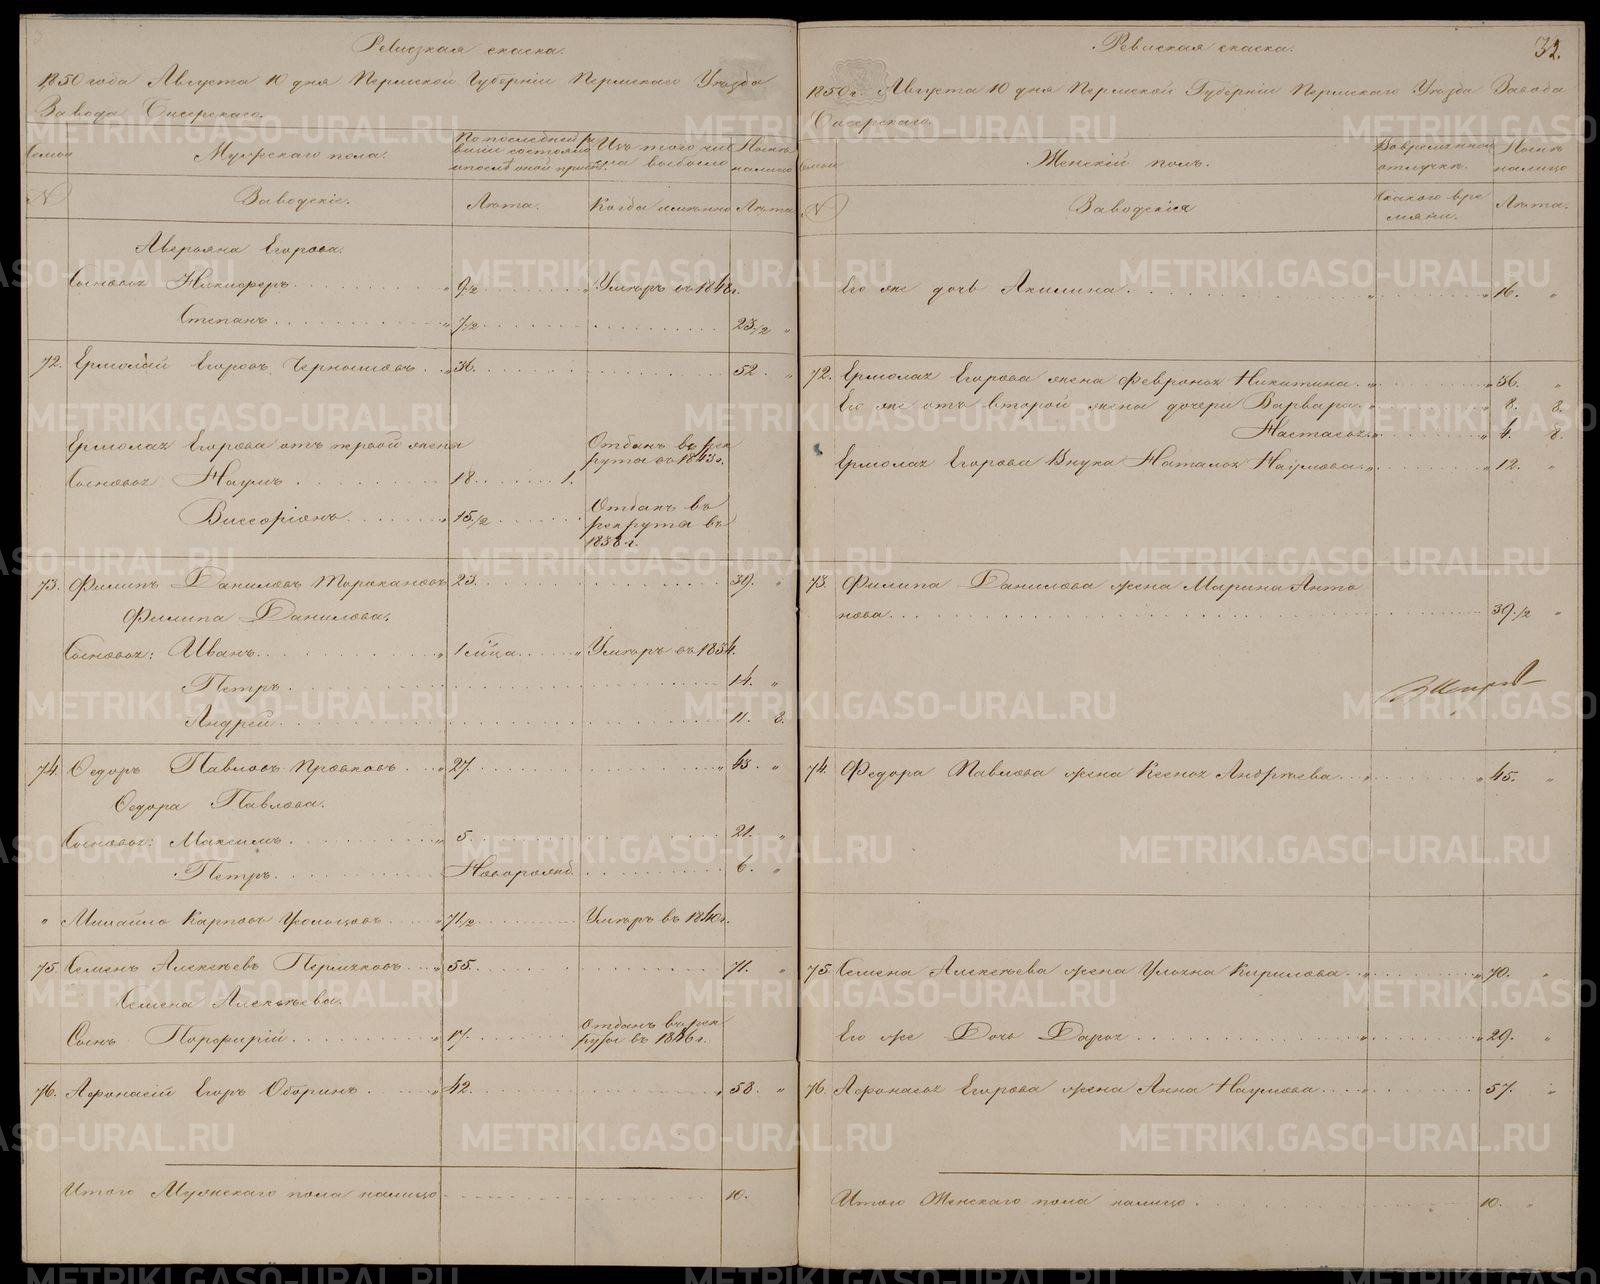 Ревизкая скаска.
1850 года Августа 10 дня Пермской Губернiи Пермскаго Уѣзда
Завода Бисерскаго.
Семьи
Мужескаго пола.
По последней ре
визiи состояло
и после оной прибы.
Изъ того чис
ла выбыло
Нынѣ
налицо
N
Заводскiе.
Лѣта.
Когда имянно
Лѣта
Аверьяна Егорова.
Сыновья Никифоръ 9½ Умеръ въ 1848 г.
Степанъ 7½ 23½ "
72. Ермолай Егоровъ Чернышовъ 36. 52. "
Ермолая Егорова отъ 1-вой жены
Сыновья Наумъ 18. 1. Отданъ въ рек
руты въ 1843 г.
Виссарiонъ 15½ Отданъ въ
рекруты въ
1838 г.
73. Филипъ Даниловъ Торокановъ 23. 39. "
Филипа Данилова.
Сыновья: Иванъ 1 м-ца Умеръ въ 1834.
Петръ 14. "
Андрей 11. 8.
74. Федоръ Павловъ 27. 43. "
Федора Павлова.
Сыновья: Максимъ 5. 21. "
Петръ Новорожд. 6. "
" Михайло Карповъ 71½ Умеръ въ 1840 г.
75. Семенъ Алексѣевъ Пермяковъ 55. 71. "
Семена Алексѣева.
Сынъ Порфирiй 17. Отданъ въ рек
руты въ 1846 г.
76. Афонасiй Егоръ Оборинъ 42. 58. "
Итого Мужскаго пола налицо 10.
Ревиская скаска. 32.
1850 г. Августа 10 дня Пермской Губернiи Пермскаго Уѣзда Завода
Бисерскаго.
Семьи
Женскiй полъ.
Во временной
отлучкѣ.
Нынѣ
налицо
N
Заводскiя
Скакого вре
мяни.
Лѣта.
Его же дочь Акилина 16. "
72. Ермолая Егорова жена Февронья Никитина 56. "
Его же отъ второй жены дочери Варвара 8. 8.
Настасья 4. 8.
Ермолая Егорова Внука Наталья Наумова 12. "
73. Филипа Данилова жена Марина Анто
нова 39½ "
74. Федора Павлова жена Ксенья Андрѣева 45. "
75. Семена Алексѣева жена Ульяна Кирилова 70. "
Его же Дочь Дарья 29. "
76. Афонасья Егорова жена Анна Наумова 57. "
Итого Женскаго пола налицо 10. "
METRIKI.GASO-URAL.RU